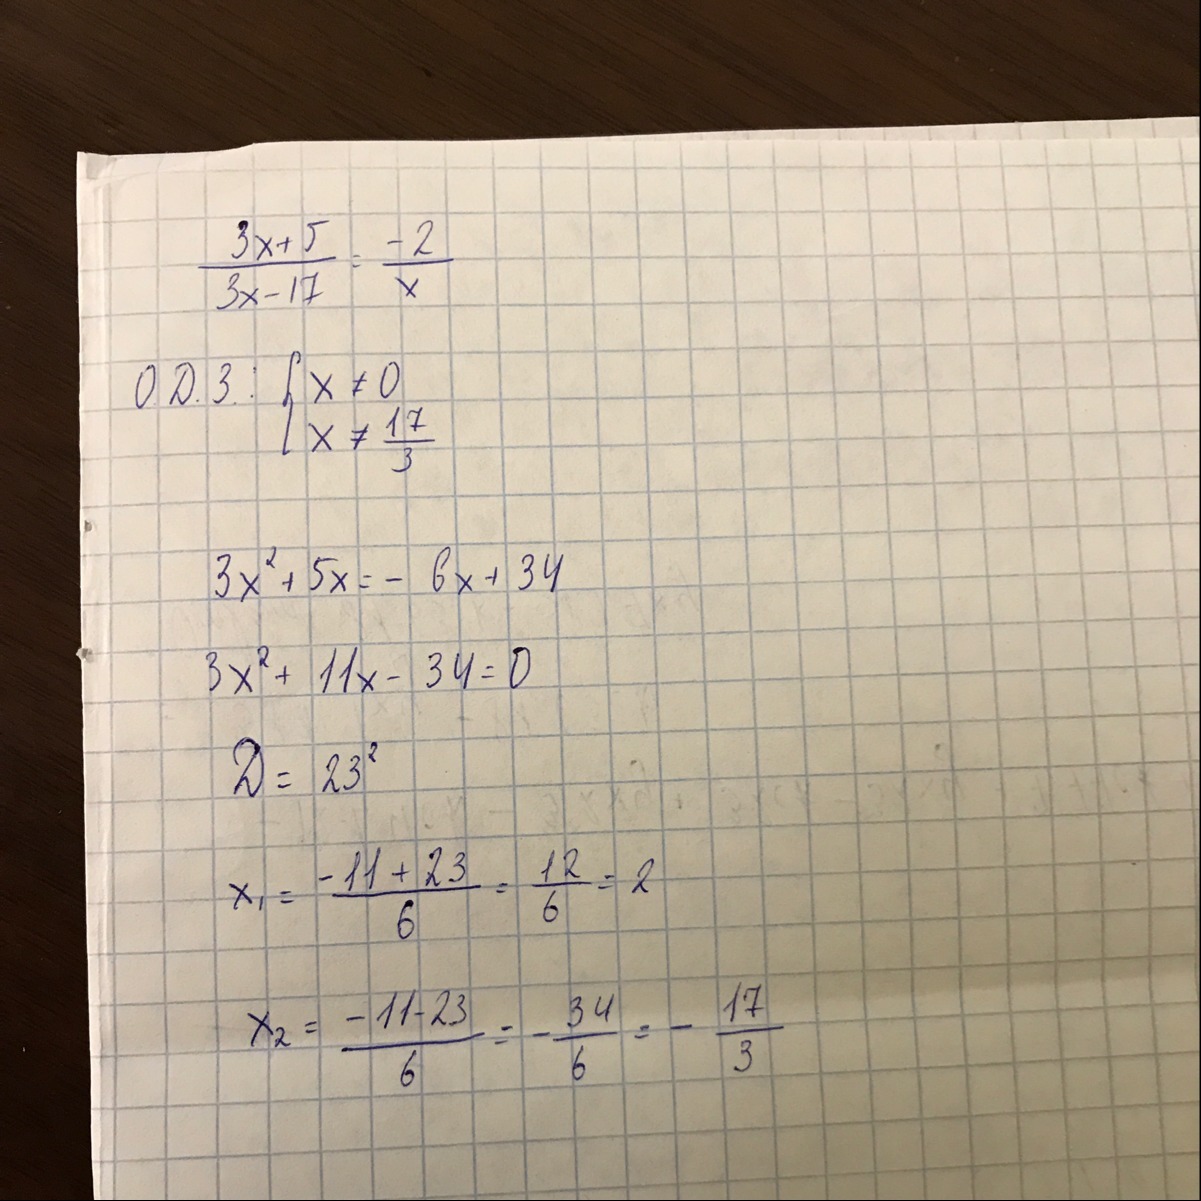 (3x+5)/(3x-17) = -2/x
О.Д.З.: { x ≠ 0
x ≠ 17/3
3x² + 5x = - 6x + 34
3x² + 11x - 34 = 0
D = 23²
x₁ = (-11 + 23)/6 = 12/6 = 2
x₂ = (-11-23)/6 = - 34/6 = - 17/3